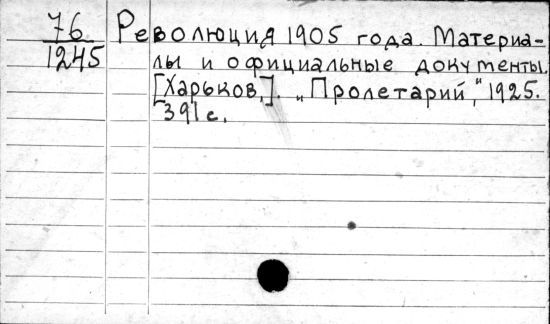 76 Революция 1905 года. Материа-
1245 лы и официальные документы.
[Харьков,]. „Пролетарий“, 1925.
391 с.